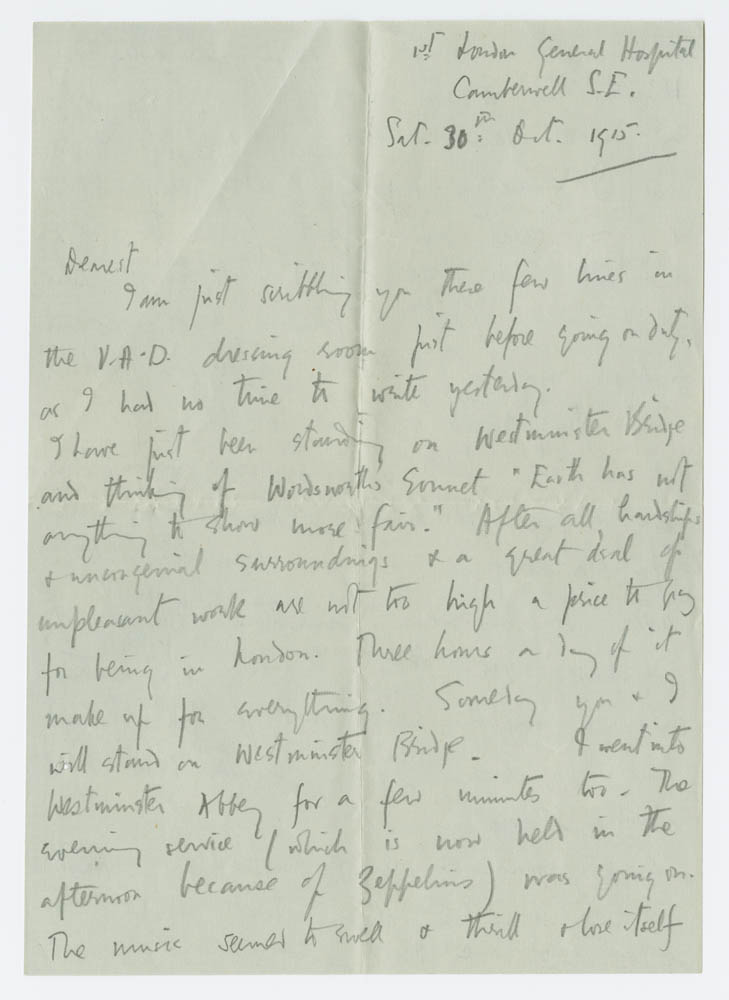 1st London General Hospital
Camberwell S.E.
Sat. 30th Oct. 1915.
Dearest
I am just scribbling you these few lines in
the V.A.D. dressing room just before going on duty,
as I had no time to write yesterday.
I have just been standing on Westminster Bridge
and thinking of Wordsworth's Sonnet "Earth has not
anything to show more fair." After all, hardships
& uncongenial surroundings & a great deal of
unpleasant work are not too high a price to pay
for being in London. Three hours a day of it
make up for everything. Someday you & I
will stand on Westminster Bridge. I went into
Westminster Abbey for a few minutes too. The
evening service (which is now held in the
afternoon because of Zeppelins) was going on.
The music seemed to swell & thrill & lose itself